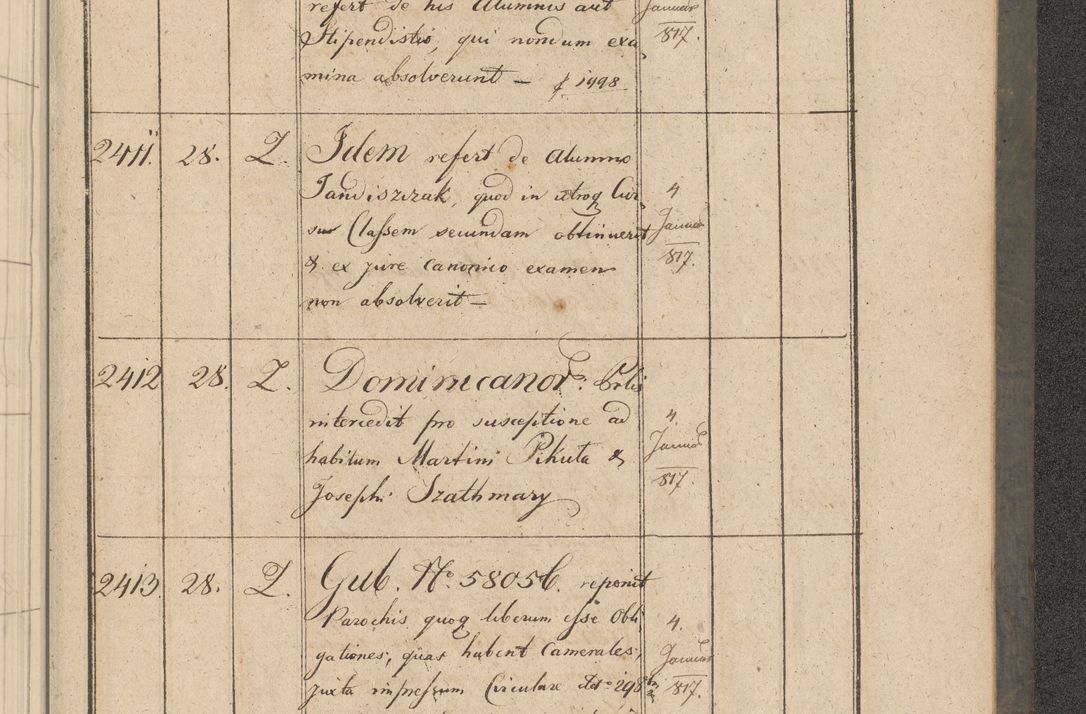 refert de his Alumnis aut
Stipendistis, qui nondum exa
mina absolverunt – f. 1998.
Januar
817.
2411. 28. Z. Idem refert de Alumno
Jandiszczak, quod in utroq Cur
sus Classem secundam obtinuerit
& ex jure canonico examen
non absolverit –
4
Januar
817.
2412 28. Z. Dominicanor: Prtis
intercedit pro susceptione ad
habitum Martini Pikuta &
Josephi Szathmary
4.
Januar
817.
2413 28. Z. Gub. No. 58056. reponit
Parochis quoq liberum esse Obli
gationes, quas habent Camerales,
juxta impressum Circulare
4.
Januar
817.